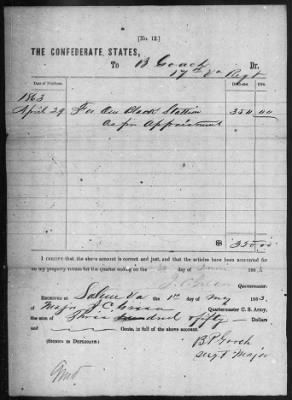 [No. 12.]
THE CONFEDERATE STATES,
To B Gooch Dr.
17th Va Regt
Date of Purchase. Dollars. Cts.
1863
April 29 For One Black Stallion 350 00
As per Appraisment
$ 350.00
I CERTIFY that the above amount is correct and just, and that the articles have been accounted for
on my property return for the quarter ending on the day of 186
Quartermaster.
RECEIVED at Salem Va the 1st of May 1863, of
Major Quartermaster C. S. Army,
the sum of Three hundred fifty Dollars
and Cents, in full of the above account.
[SIGNED IN DUPLICATE.] B P Gooch
Sergt Major